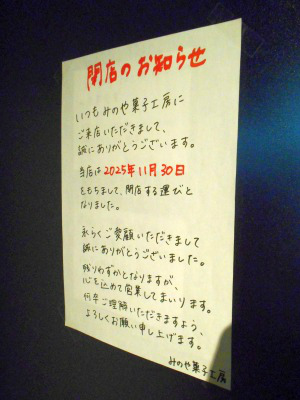 閉店のお知らせ
いつもみのや菓子工房に
ご来店いただきまして、
誠にありがとうございます。
当店は2025年11月30日
をもちまして、閉店する運びと
なりました。
永らくご愛顧いただきまして
誠にありがとうございました。
残りわずかとなりますが、
心を込めて営業してまいります。
何卒ご理解いただきますよう、
よろしくお願い申し上げます。
みのや菓子工房